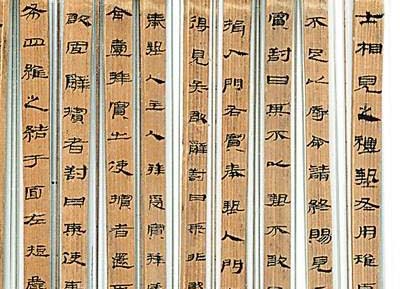 士相見之禮摯冬用雉
不足以辱命請終賜見
賓對曰某不以摯不敢
揖入門右賓奉摯入門
得見矣敢辭對曰某非敢
奉摯入主人拜受賓拜
壹拜賓出使擯者還
敢固辭擯者對曰某使某
布四維之結于面左